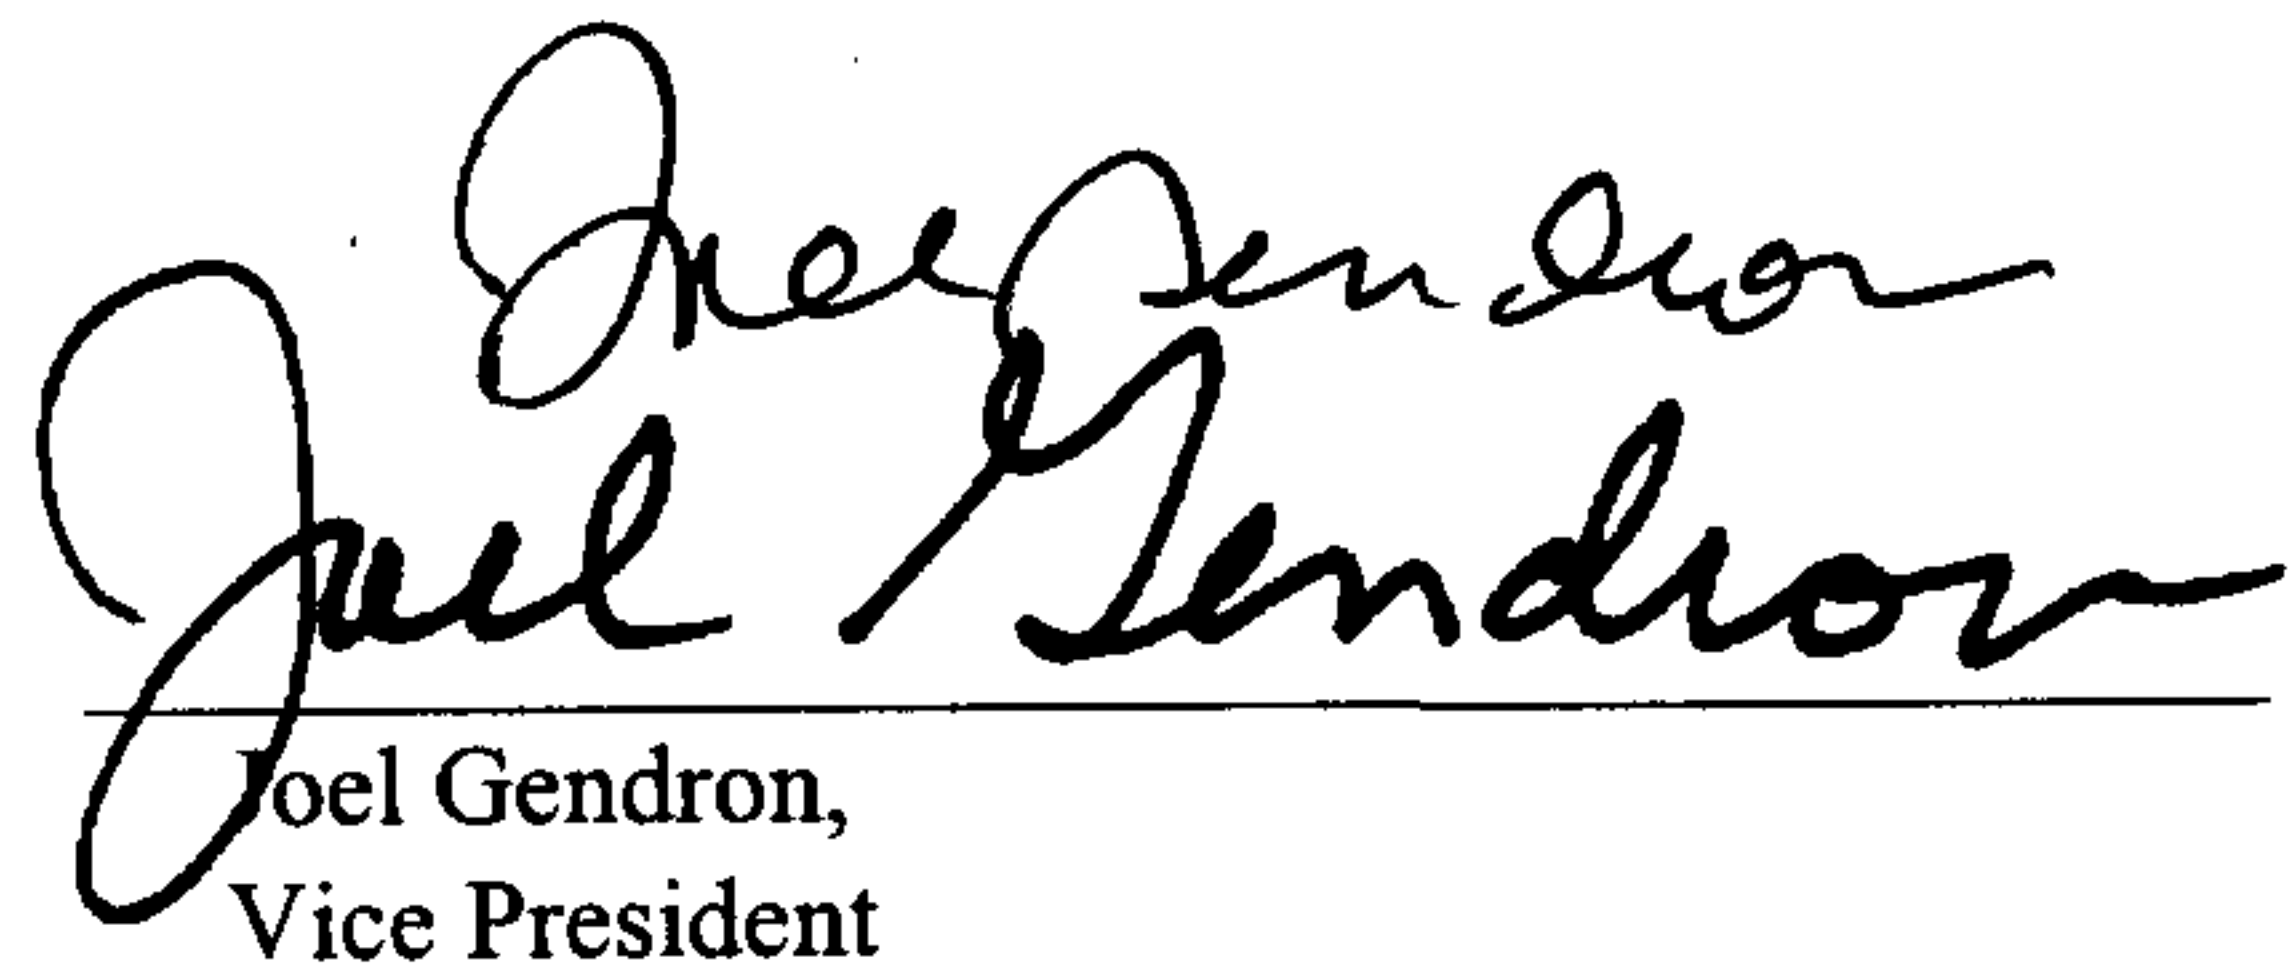 Joel Gendron
Joel Gendron
Joel Gendron,
Vice President